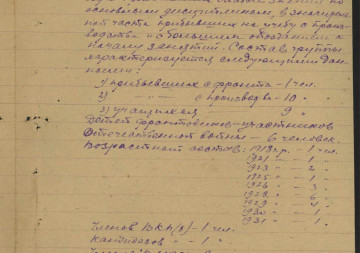 основным дисциплинам, в значитель-
ной части прибывших на учебу с произ-
водства с большим опозданием к
началу занятий. Состав группы
характеризуется следующими дан
ными:
1) прибывших с фронта – 1 чел.
2) —"— с производ ва – 10 "
3) учащихся 9 "
Детей фронтовиков-участников
Отечественной войны – 6 человек.
Возрастной состав: 1918 г.р. – 1 чел.
1921 – 1 "
1923 – 2 "
1925 – 1 "
1926 – 3 "
1928 – 6 "
1929 – 4 "
1930 – 1 "
1931 – 1 "
Членов ВКП(б) – 1 чел.
Кандидатов " – 1 "